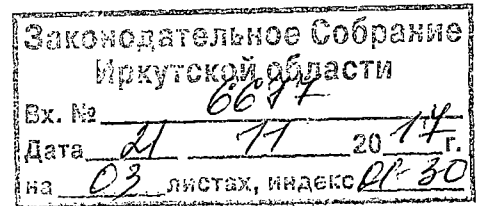 Законодательное Собрание
Иркутской области
Вх. № 6677
Дата 21 11 2017 г.
на 03 листах, индекс 01-30